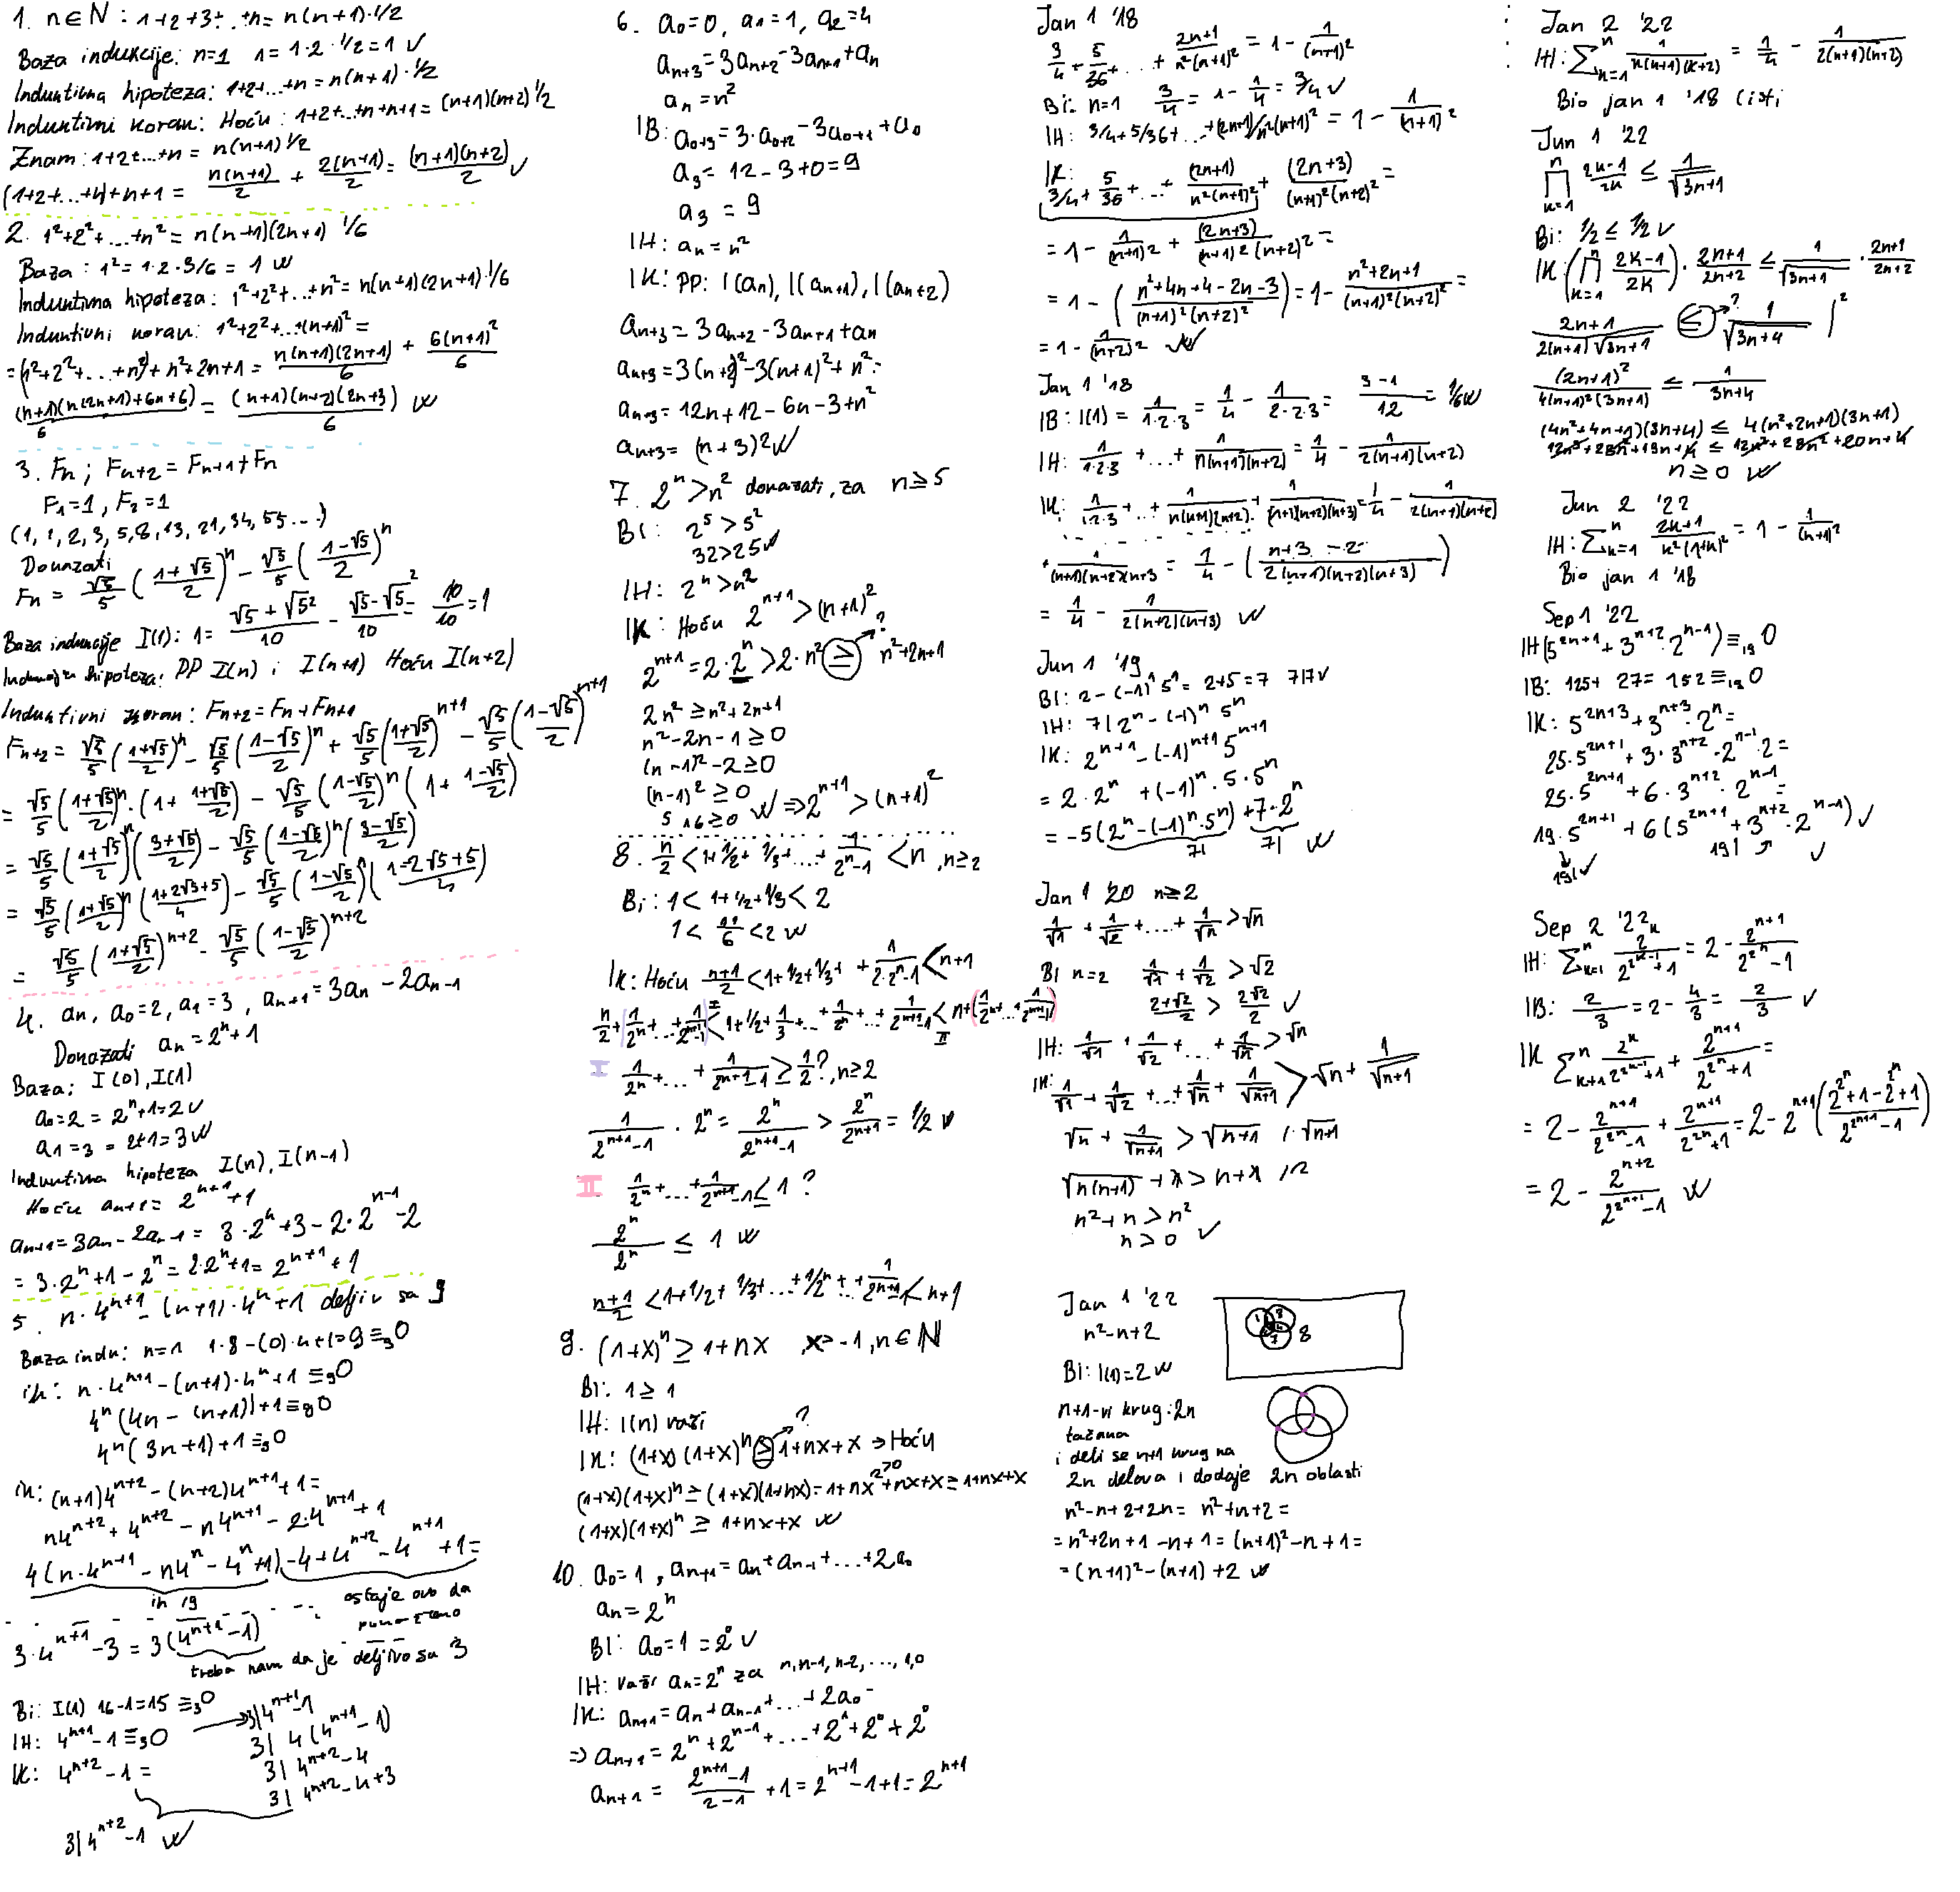 1. n∈N : 1+2+3+...+n = n(n+1)·1/2
Baza indukcije: n=1 1=1·2·1/2=1 ✓
Induktivna hipoteza: 1+2+...+n = n(n+1)·1/2
Induktivni korak: Hoću: 1+2+...+n+n+1 = (n+1)(n+2) 1/2
Znam: 1+2+...+n = n(n+1) 1/2
(1+2+...+n)+n+1 = n(n+1)/2 + 2(n+1)/2 = (n+1)(n+2)/2 ✓
2. 1²+2²+...+n² = n(n+1)(2n+1) 1/6
Baza: 1²=1·2·3/6 = 1 w
Induktivna hipoteza: 1²+2²+...+n² = n(n+1)(2n+1)·1/6
Induktivni korak: 1²+2²+...+(n+1)² =
=(1²+2²+...+n²)+n²+2n+1 = n(n+1)(2n+1)/6 + 6(n+1)²/6
(n+1)(n(2n+1)+6n+6)/6 = (n+1)(n+2)(2n+3)/6 w
3. Fn ; Fn+2 = Fn+1+Fn
F1=1, F2=1
(1, 1, 2, 3, 5, 8, 13, 21, 34, 55...)
Dokazati
Fn = √5/5 ((1+√5)/2)^n - √5/5 ((1-√5)/2)^n
Baza indukcije I(1): 1 = (√5+√5²)/10 - (√5-√5²)/10 = 10/10 = 1
hipoteza: PP I(n) i I(n+1) Hoću I(n+2)
Induktivni korak: Fn+2 = Fn+Fn+1
Fn+2 = √5/5 ((1+√5)/2)^n - √5/5 ((1-√5)/2)^n + √5/5 ((1+√5)/2)^(n+1) - √5/5 ((1-√5)/2)^(n+1)
= √5/5 ((1+√5)/2)^n · (1 + (1+√5)/2) - √5/5 ((1-√5)/2)^n (1 + (1-√5)/2)
= √5/5 ((1+√5)/2)^n ((3+√5)/2) - √5/5 ((1-√5)/2)^n ((3-√5)/2)
= √5/5 ((1+√5)/2)^n ((1+2√5+5)/4) - √5/5 ((1-√5)/2)^n ((1-2√5+5)/4)
= √5/5 ((1+√5)/2)^(n+2) - √5/5 ((1-√5)/2)^(n+2)
4. an, a0=2, a1=3, an+1 = 3an - 2an-1
Dokazati an = 2^n+1
Baza: I(0), I(1)
a0=2 = 2^n+1=2 ✓
a1=3 = 2+1=3 w
Induktivna hipoteza I(n), I(n-1)
Hoću an+1 = 2^(n+1)+1
an+1 = 3an - 2an-1 = 3·2^n+3 - 2·2^(n-1) - 2
= 3·2^n+1-2^n = 2·2^n+1 = 2^(n+1)+1
5. n·4^(n+1) - (n+1)·4^n+1 deljiv sa 9
Baza indu: n=1 1·8-(0)·4+1=9 ≡9 0
ih: n·4^(n+1) - (n+1)·4^n+1 ≡9 0
4^n (4n - (n+1))+1 ≡9 0
4^n (3n+1)+1 ≡9 0
ik: (n+1)4^(n+2) - (n+2)4^(n+1)+1 =
n4^(n+2) + 4^(n+2) - n4^(n+1) - 2·4^(n+1) + 1
4(n·4^(n+1) - n4^n - 4^n+1) -4+4^(n+2) - 4^(n+1) + 1 =
ih 19
ostaje ovo da
3·4^(n+1) - 3 = 3(4^(n+1) - 1)
treba nam da je deljivo sa 3
Bi: I(1) 16-1=15 ≡3 0
3|4^(n+1) - 1
IH: 4^(n+1) - 1 ≡3 0
3| 4(4^(n+1) - 1)
IK: 4^(n+2) - 1 =
3| 4^(n+2) - 4
3| 4^(n+2) - 4+3
3|4^(n+2) - 1 w
6. a0=0, a1=1, a2=4
an+3 = 3an+2 - 3an+1 + an
an = n²
IB: a0+3 = 3·a0+2 - 3a0+1 + a0
a3 = 12-3+0=9
a3 = 9
IH: an = n²
IK: PP: I(an), I(an+1), I(an+2)
an+3 = 3an+2 - 3an+1 + an
an+3 = 3(n+2)² - 3(n+1)² + n² =
an+3 = 12n+12-6n-3+n²
an+3 = (n+3)² w
7. 2^n > n² dokazati, za n≥5
BI: 2^5 > 5²
32>25 w
IH: 2^n > n²
IK: Hoću 2^(n+1) > (n+1)²
2^(n+1) = 2·2^n > 2·n² ≥ n²+2n+1 ?
2n² ≥ n²+2n+1
n²-2n-1 ≥ 0
(n-1)²-2 ≥ 0
(n-1)² ≥ 0
5 16≥0 w ⇒ 2^(n+1) > (n+1)²
8. n/2 < 1+1/2+1/3+...+1/(2^n-1) < n, n≥2
Bi: 1 < 1+1/2+1/3 < 2
1 < 11/6 < 2 w
IK: Hoću (n+1)/2 < 1+1/2+1/3+ + 1/(2·2^n-1) < n+1
n/2 + (1/2^n+...+1/(2^(n+1)-1)) < 1+1/2+1/3+...+1/2^n+...+1/(2^(n+1)-1) < n+(1/2^n+...+1/(2^(n+1)-1))
I II
I 1/2^n+...+1/(2^(n+1)-1) ≥ 1/2 ?, n≥2
1/(2^(n+1)-1) · 2^n = 2^n/(2^(n+1)-1) > 2^n/2^(n+1) = 1/2 w
II 1/2^n+...+1/(2^(n+1)-1) ≤ 1 ?
2^n/2^n ≤ 1 w
(n+1)/2 < 1+1/2+1/3+...+1/2^n+...+1/(2^(n+1)-1) < n+1
9. (1+x)^n ≥ 1+nx, x>-1, n∈N
BI: 1≥1
IH: I(n) važi
IK: (1+x)(1+x)^n ≥ 1+nx+x ⇒ Hoću ?
(1+x)(1+x)^n ≥ (1+x)(1+nx) = 1+nx²+nx+x ≥ 1+nx+x
≥0
(1+x)(1+x)^n ≥ 1+nx+x w
10. a0=1, an+1 = an+an-1+...+2a0
an = 2^n
BI: a0=1=2^0 ✓
IH: važi an=2^n za n, n-1, n-2, ..., 1, 0
IK: an+1 = an+an-1+...+2a0 =
⇒ an+1 = 2^n+2^(n-1)+...+2^1+2^0+2^0
an+1 = (2^(n+1)-1)/(2-1) + 1 = 2^(n+1)-1+1 = 2^(n+1)
Jan 1 '18
3/4 + 5/36 + ... + (2n+1)/(n²(n+1)²) = 1 - 1/(n+1)²
Bi: n=1 3/4 = 1 - 1/4 = 3/4 ✓
IH: 3/4+5/36+...+(2n+1)/n²(n+1)² = 1 - 1/(n+1)²
IK:
3/4 + 5/36 + ... + (2n+1)/(n²(n+1)²) + (2n+3)/((n+1)²(n+2)²) =
= 1 - 1/(n+1)² + (2n+3)/((n+1)²(n+2)²) =
= 1 - ((n²+4n+4-2n-3)/((n+1)²(n+2)²)) = 1 - (n²+2n+1)/((n+1)²(n+2)²) =
= 1 - 1/(n+2)² w
Jan 1 '18
IB: I(1) = 1/(1·2·3) = 1/4 - 1/(2·2·3) = (3-1)/12 = 1/6 w
IH: 1/(1·2·3) + ... + 1/(n(n+1)(n+2)) = 1/4 - 1/(2(n+1)(n+2))
IK: 1/(1·2·3) + ... + 1/(n(n+1)(n+2)) + 1/((n+1)(n+2)(n+3)) = 1/4 - 1/(2(n+1)(n+2))
+ 1/((n+1)(n+2)(n+3) = 1/4 - ((n+3-2)/(2(n+1)(n+2)(n+3)))
= 1/4 - 1/(2(n+2)(n+3)) w
Jun 1 '19
BI: 2-(-1)^1 5^1 = 2+5=7 7|7 ✓
IH: 7|2^n-(-1)^n 5^n
IK: 2^(n+1)-(-1)^(n+1) 5^(n+1)
= 2·2^n+(-1)^n·5·5^n
= -5(2^n-(-1)^n·5^n)+7·2^n
7| 7| w
Jan 1 '20 n≥2
1/√1 + 1/√2 + ... + 1/√n > √n
BI n=2 1/√1 + 1/√2 > √2
(2+√2)/2 > 2√2/2 ✓
IH: 1/√1 + 1/√2 + ... + 1/√n > √n
IK: 1/√1 + 1/√2 + ... + 1/√n + 1/√(n+1) > √n + 1/√(n+1)
√n + 1/√(n+1) > √(n+1) /·√(n+1)
√(n(n+1)) + 1 > n+1 /²
n²+n > n²
n > 0 ✓
Jan 1 '22
n²-n+2
1 8 7 8
BI: I(1)=2 w
n+1-vi krug: 2n
tačana
i deli se n+1 krug na
2n delova i dodaje 2n oblasti
n²-n+2+2n = n²+n+2 =
= n²+2n+1-n+1 = (n+1)²-n+1 =
= (n+1)²-(n+1)+2 w
Jan 2 '22
IH: ∑ k=1 n 1/(k(k+1)(k+2)) = 1/4 - 1/(2(n+1)(n+2))
Bio jan 1 '18 (isti
Jun 1 '22
∏ k=1 n (2k-1)/2k ≤ 1/√(3n+1)
Bi: 1/2 ≤ 1/2 ✓
IK: (∏ k=1 n (2k-1)/2k) · (2n+1)/(2n+2) ≤ 1/√(3n+1) · (2n+1)/(2n+2)
(2n+1)/(2(n+1)√(3n+1)) ≤ ? 1/√(3n+4) |²
(2n+1)²/(4(n+1)²(3n+1)) ≤ 1/(3n+4)
(4n²+4n+1)(3n+4) ≤ 4(n²+2n+1)(3n+1)
12n³+28n²+19n+4 ≤ 12n³+28n²+20n+4
n≥0 w
Jun 2 '22
IH: ∑ k=1 n (2k+1)/(k²(1+k)²) = 1 - 1/(n+1)²
Bio jan 1 '18
Sep 1 '22
IH (5^(2n+1)+3^(n+2)·2^(n-1)) ≡19 0
IB: 125+27=152 ≡19 0
IK: 5^(2n+3)+3^(n+3)·2^n =
25·5^(2n+1)+3·3^(n+2)·2^(n-1)·2 =
25·5^(2n+1)+6·3^(n+2)·2^(n-1) =
19·5^(2n+1)+6(5^(2n+1)+3^(n+2)·2^(n-1)) ✓
19| ✓ 19| ✓
Sep 2 '22
IH: ∑ k=1 n 2^k/(2^(2^(k-1))+1) = 2 - 2^(n+1)/(2^(2^n)-1)
IB: 2/3 = 2 - 4/3 = 2/3 ✓
IK ∑ k=1 n 2^k/(2^(2^(k-1))+1) + 2^(n+1)/(2^(2^n)+1) =
= 2 - 2^(n+1)/(2^(2^n)-1) + 2^(n+1)/(2^(2^n)+1) = 2 - 2^(n+1)((2^(2^n)+1-2^(2^n)+1)/(2^(2^(n+1))-1))
= 2 - 2^(n+2)/(2^(2^(n+1))-1) w